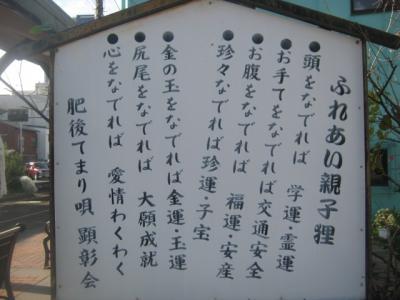 ふれあい親子狸
頭をなでれば 学運・霊運
お手てをなでれば交通安全
お腹をなでれば 福運・安産
珍々なでれば珍運・子宝
金の玉をなでれば金運・玉運
尻尾をなでれば 大願成就
心をなでれば 愛情わくわく
肥後てまり唄 顕彰会